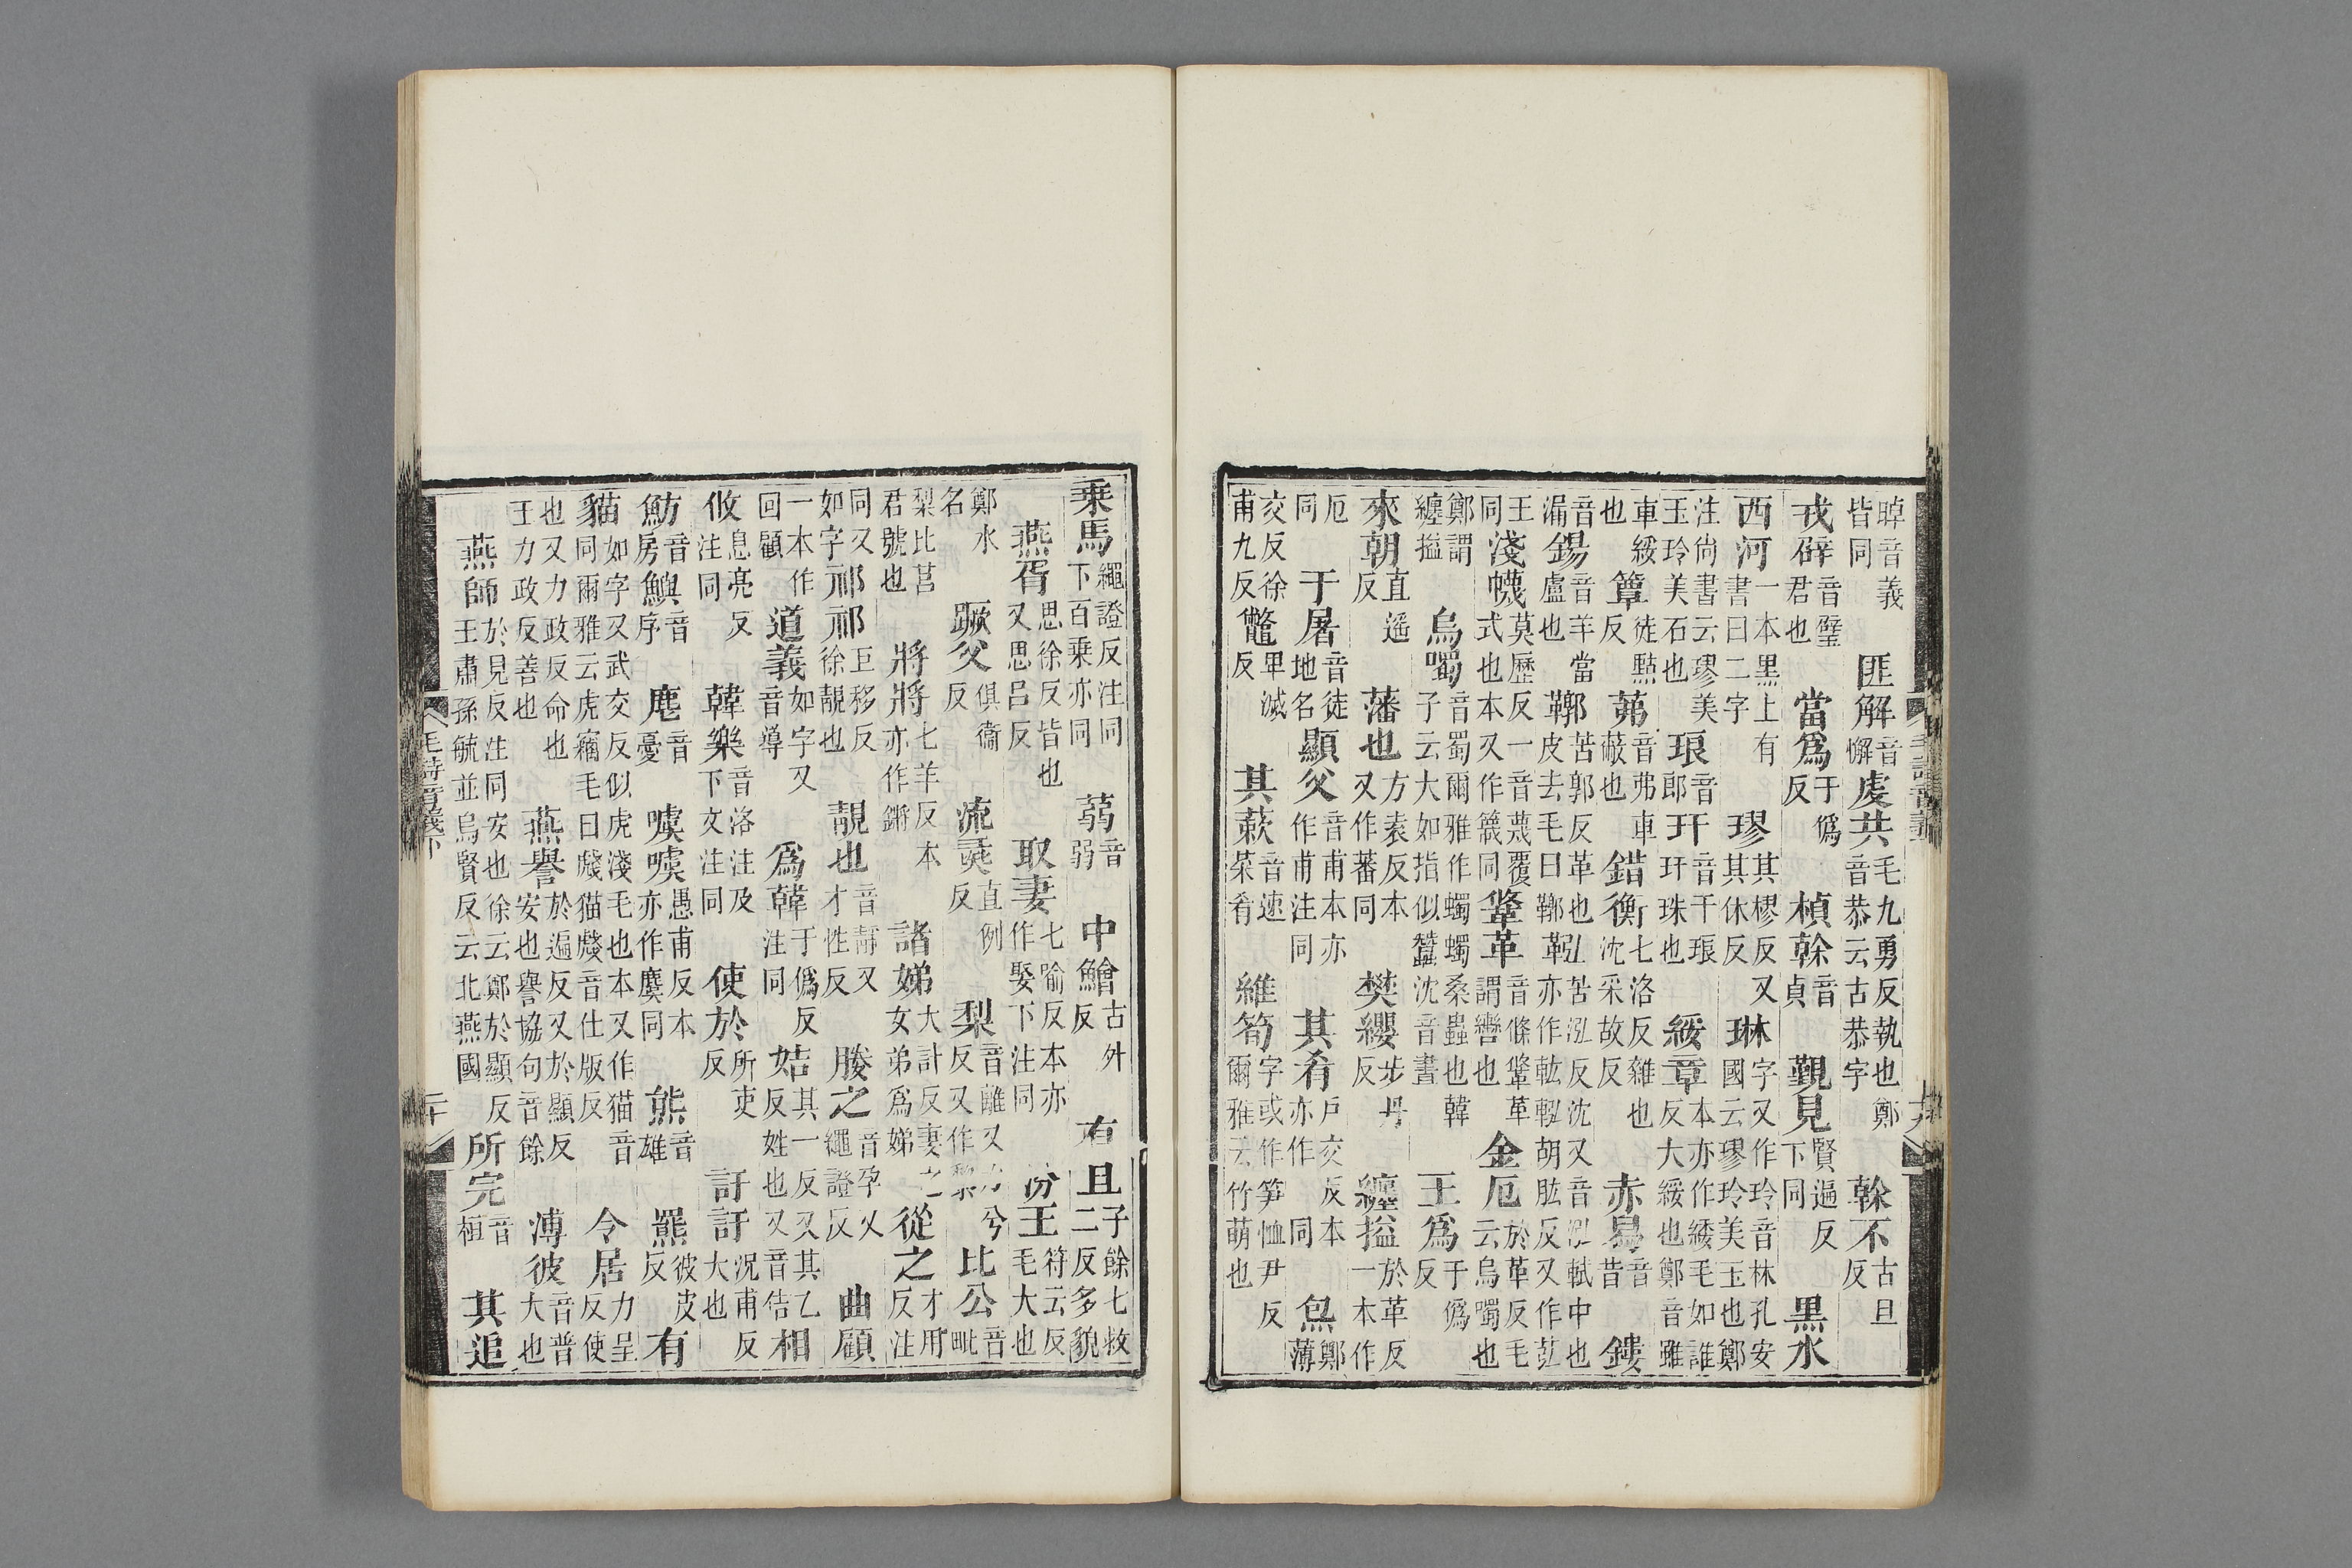 晫音義皆同 匪解音懈 虔共毛九勇反執也鄭音恭云古恭字 榦不古旦反
戎辟音璧君也 當爲于僞反 楨榦音貞 覲見賢遍反下同 黑水
西河一本黑上有書曰二字 璆其樛反又其休反 琳字又作玲音林孔安國云璆玲美玉也鄭
注尚書云璆美玉玲美石也 琅音郎 玕音干琅玕珠也 綏章本亦作緌毛如誰反大綏也鄭音雖
車綏也 簟徒點反 茀音弗車蔽也 錯衡七洛反雜也沈采故反 赤舄音昔 鏤
音漏 鍚音羊當盧也 鞹苦郭反革也皮去毛曰鞹 鞃苦泓反沈又音泓軾中也亦作胡肱反又作
王同 淺幭莫歷反一音蔑覆式也本又作簚同 鞗革音條鞗革謂轡也 金厄於革反毛云烏噣也
鄭謂纏搤 烏噣音蜀爾雅作蠋蠋桑蟲也韓子云大如指似蠶沈音晝 王爲于僞反
來朝直遥反 藩也方袁反本又作蕃同 樊纓步丹反 纏搤於革反一本作
厄同 于屠音徒地名 顯父音甫本亦作甫注同 其肴戶交反本亦作同 炰鄭薄
交反徐甫九反 鼈卑滅反 其蔌音速菜肴 維筍字或作笋恤尹反爾雅云竹萌也
毛詩音義下
乗馬繩證反注同下百乗亦同 蒻音弱 中鱠古外反 有且子餘七救二反多貌
燕胥思徐反皆也又思吕反 取妻七喻反本亦作娶下注同 汾王符云反毛大也
鄭水名 蹶父俱衞反 流彘直例反 梨音離又力兮反又作黎 比公音毗
梨比莒君號也 將將七羊反本亦作鏘 諸娣大計反妻之女弟爲娣 從之才用反注
同又如字 祁祁巨移反徐靚也 靚也音靜又才性反 媵之音孕又繩證反 曲顧
一本作回顧 道義如字又音導 爲韓于僞反注同 姞其一反又其乙反姓也又音佶 相
攸息亮反注同 韓樂音洛注及下文注同 使於所吏反 訏訏況甫反大也
魴音房 鱮音序 麀音憂 噳噳愚甫反本亦作麌同 熊音雄 羆彼皮反 有
貓如字又武交反似虎淺毛也本又作猫音同爾雅云虎竊毛曰虦猫虦音仕版反 令居力呈反使
也又力政反命也王力政反善也 燕譽於遍反又於顯反安也譽協句音餘 溥彼音普大也
燕師於見反注同安也徐云鄭於顯反王肅孫毓並烏賢反云北燕國 所完音桓 其追
毛詩音義下 二十